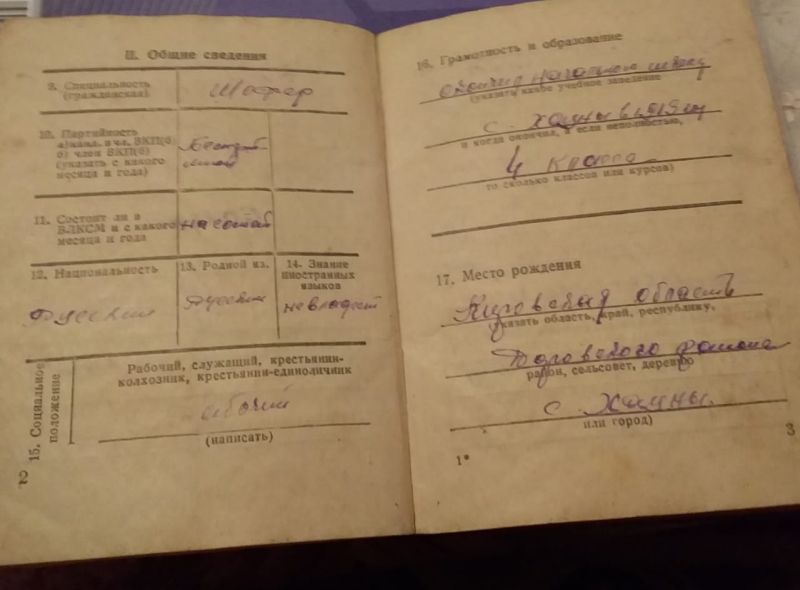 II. Общие сведения
9. Специальность
(гражданская)
Шофер
10. Партийность
а) канд. в чл. ВКП(б)
б) член ВКП(б)
(указать с какого
месяца и года)
11. Состоит ли в
ВЛКСМ и с какого
месяца и года
не состоит
12. Национальность
Русский
13. Родной яз.
Русский
14. Знание
иностранных
языков
не владеет
15. Социальное
положение
Рабочий, служащий, крестьянин-
колхозник, крестьянин-единоличник
рабочий
(написать)
2
16. Грамотность и образование
окончил начальную школу
(указать какое учебное заведение
с
и когда окончил, а если неполностью,
4 класса
то сколько классов или курсов)
17. Место рождения
область
указать область, край, республику,
района
район, сельсовет, деревню
с.
или город)
1*
3